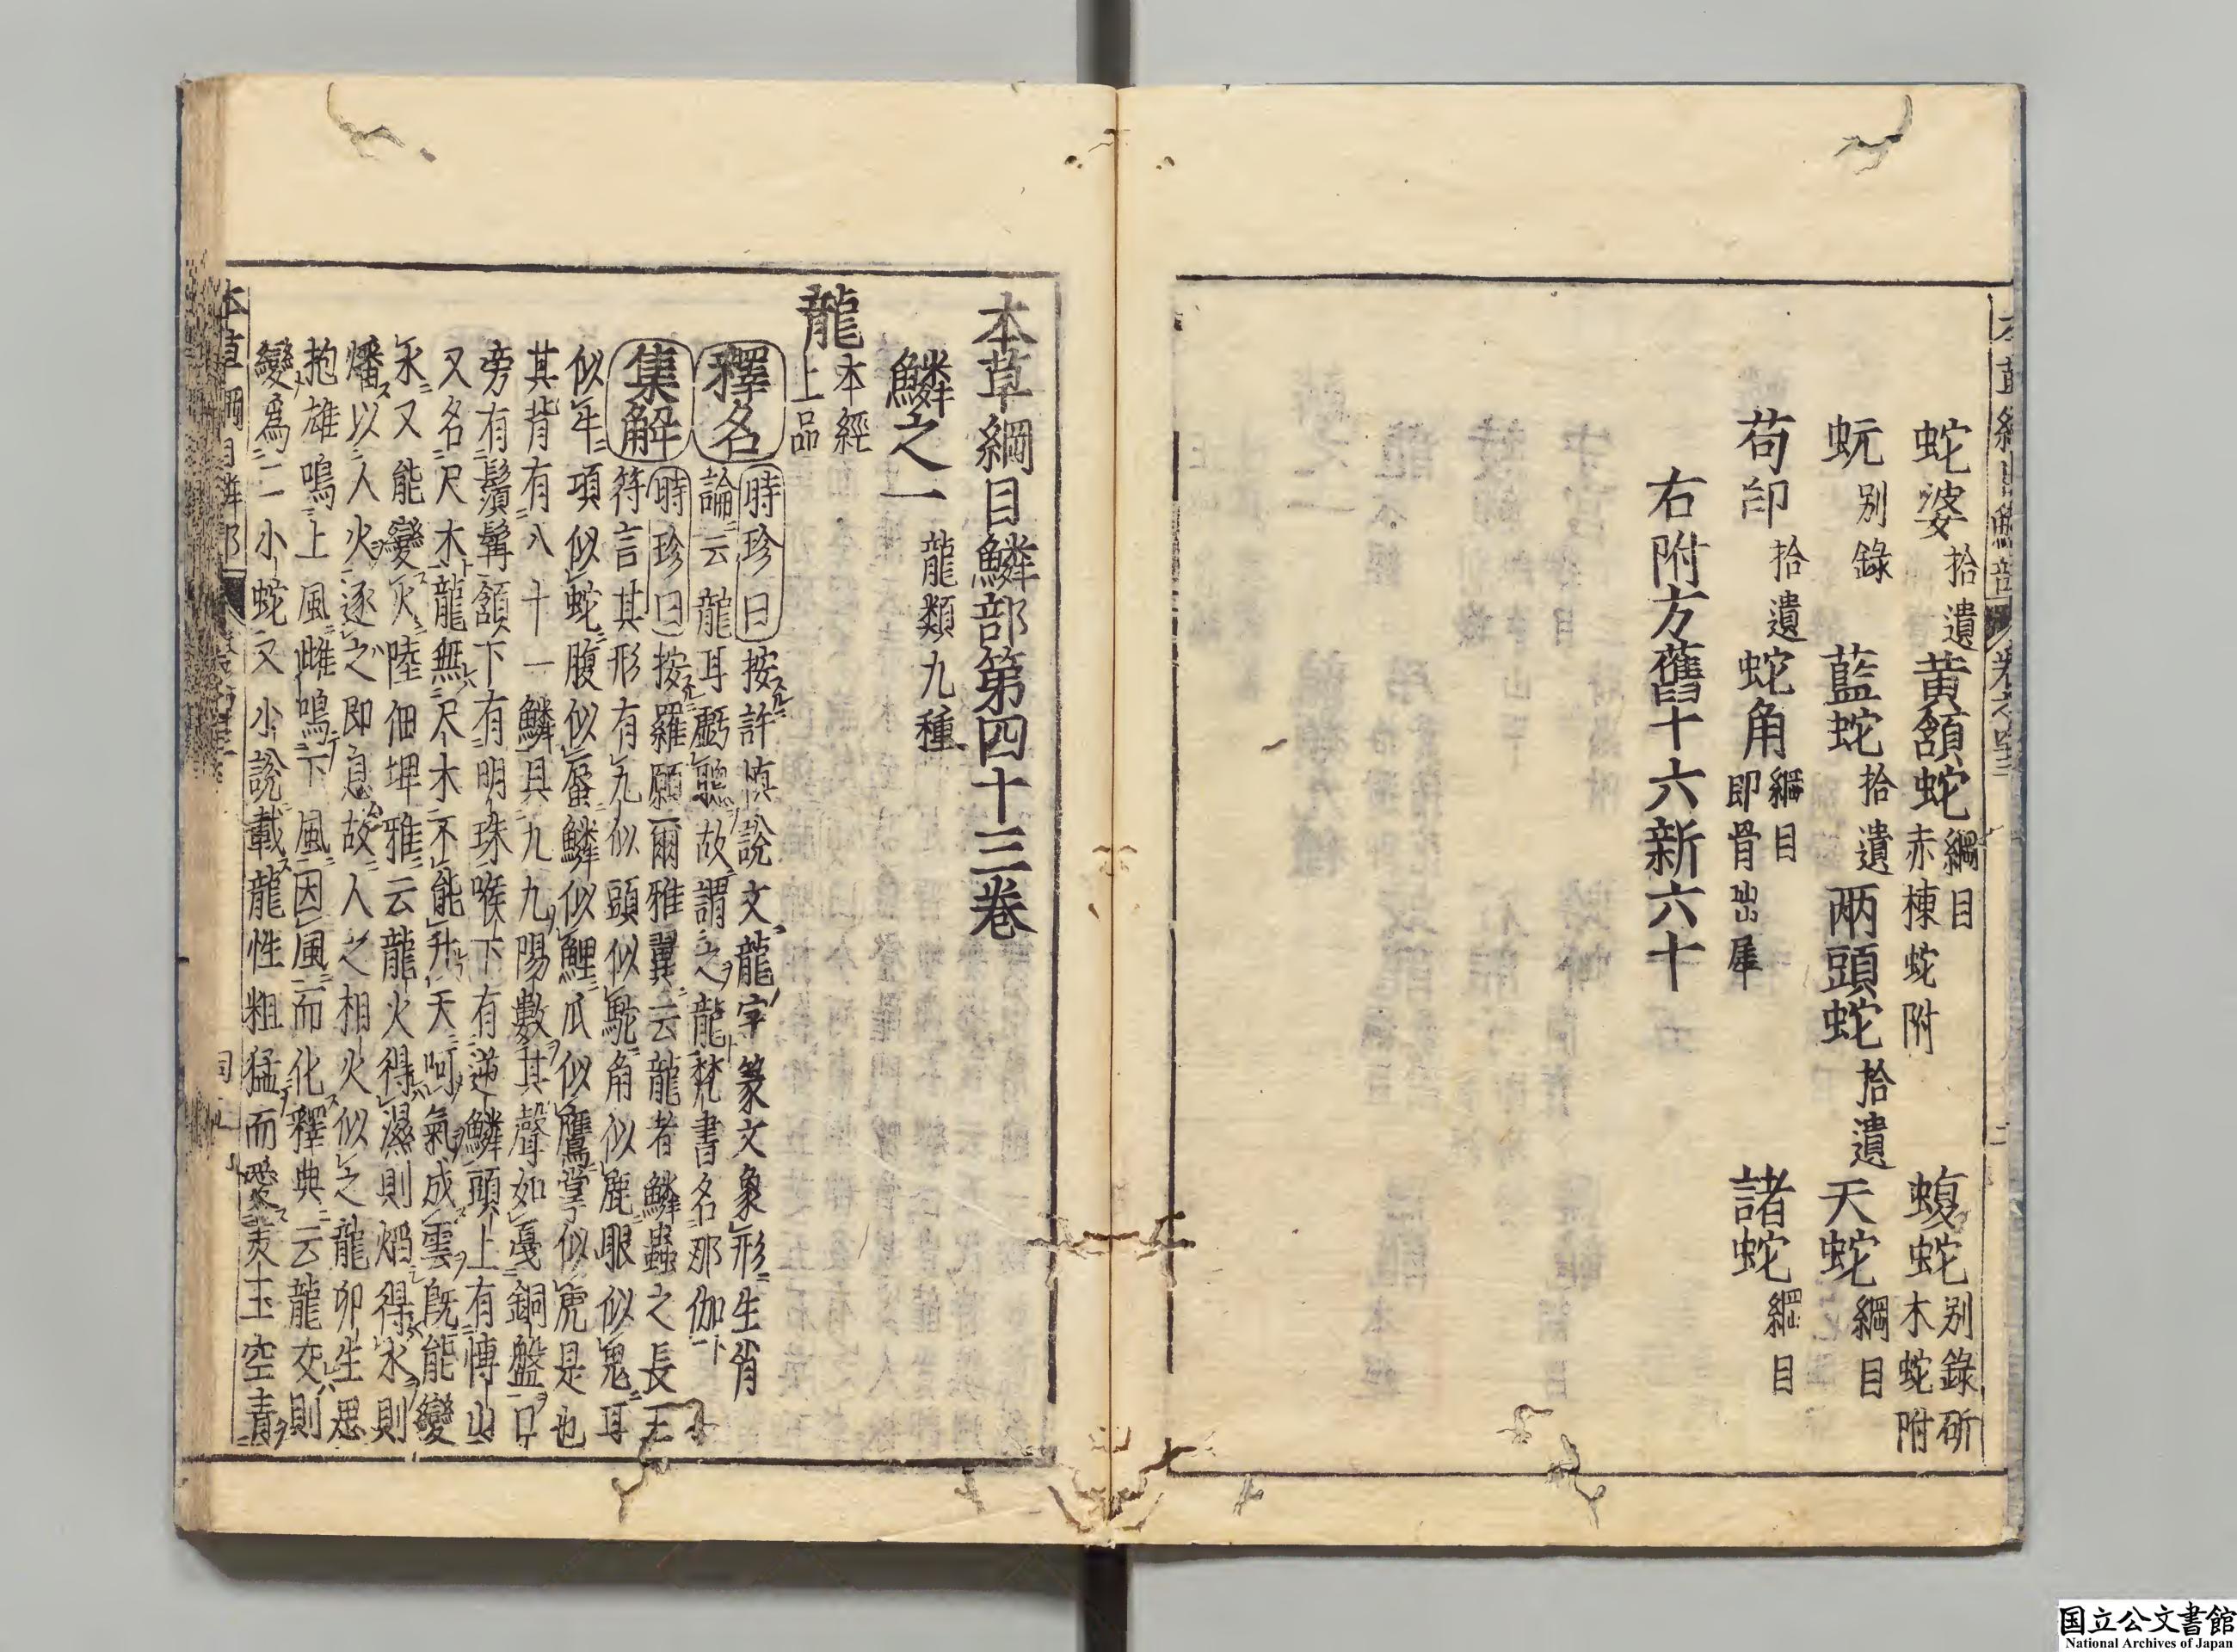 蛇婆拾遺 黄頷蛇綱目赤楝蛇附 蝮蛇別錄木蛇附
蚖別錄 藍蛇拾遺 兩頭蛇拾遺 天蛇綱目
苟印拾遺 蛇角綱目即骨咄犀 諸蛇綱目
右附方舊十六新六十
本草綱目鱗部第四十三卷
鱗之一龍類九種
龍本經上品
釋名時珍曰按許愼說文龍字篆文象形生肖
論云龍耳虧聰故謂之龍梵書名那伽
集解時珍曰按羅願爾雅翼云龍者鱗蟲之長王
符言其形有九似頭似駝角似鹿眼似鬼耳
似牛項似蛇腹似蜃鱗似鯉爪似鷹掌似虎是也
其背有八十一鱗具九九陽數其聲如戛銅盤口
旁有鬚髯頷下有明珠喉下有逆鱗頭上有博山
又名尺木龍無尺木不能升天呵氣成雲旣能變
水又能變火陸佃埤雅云龍火得濕則焰得水則
燔以人火逐之即息故人之相火似之龍卵生思
抱雄鳴上風雌鳴下風因風而化釋典云龍交則
變爲二小蛇又小說載龍性粗猛而愛美玉空青
国立公文書館
National Archives of Japan